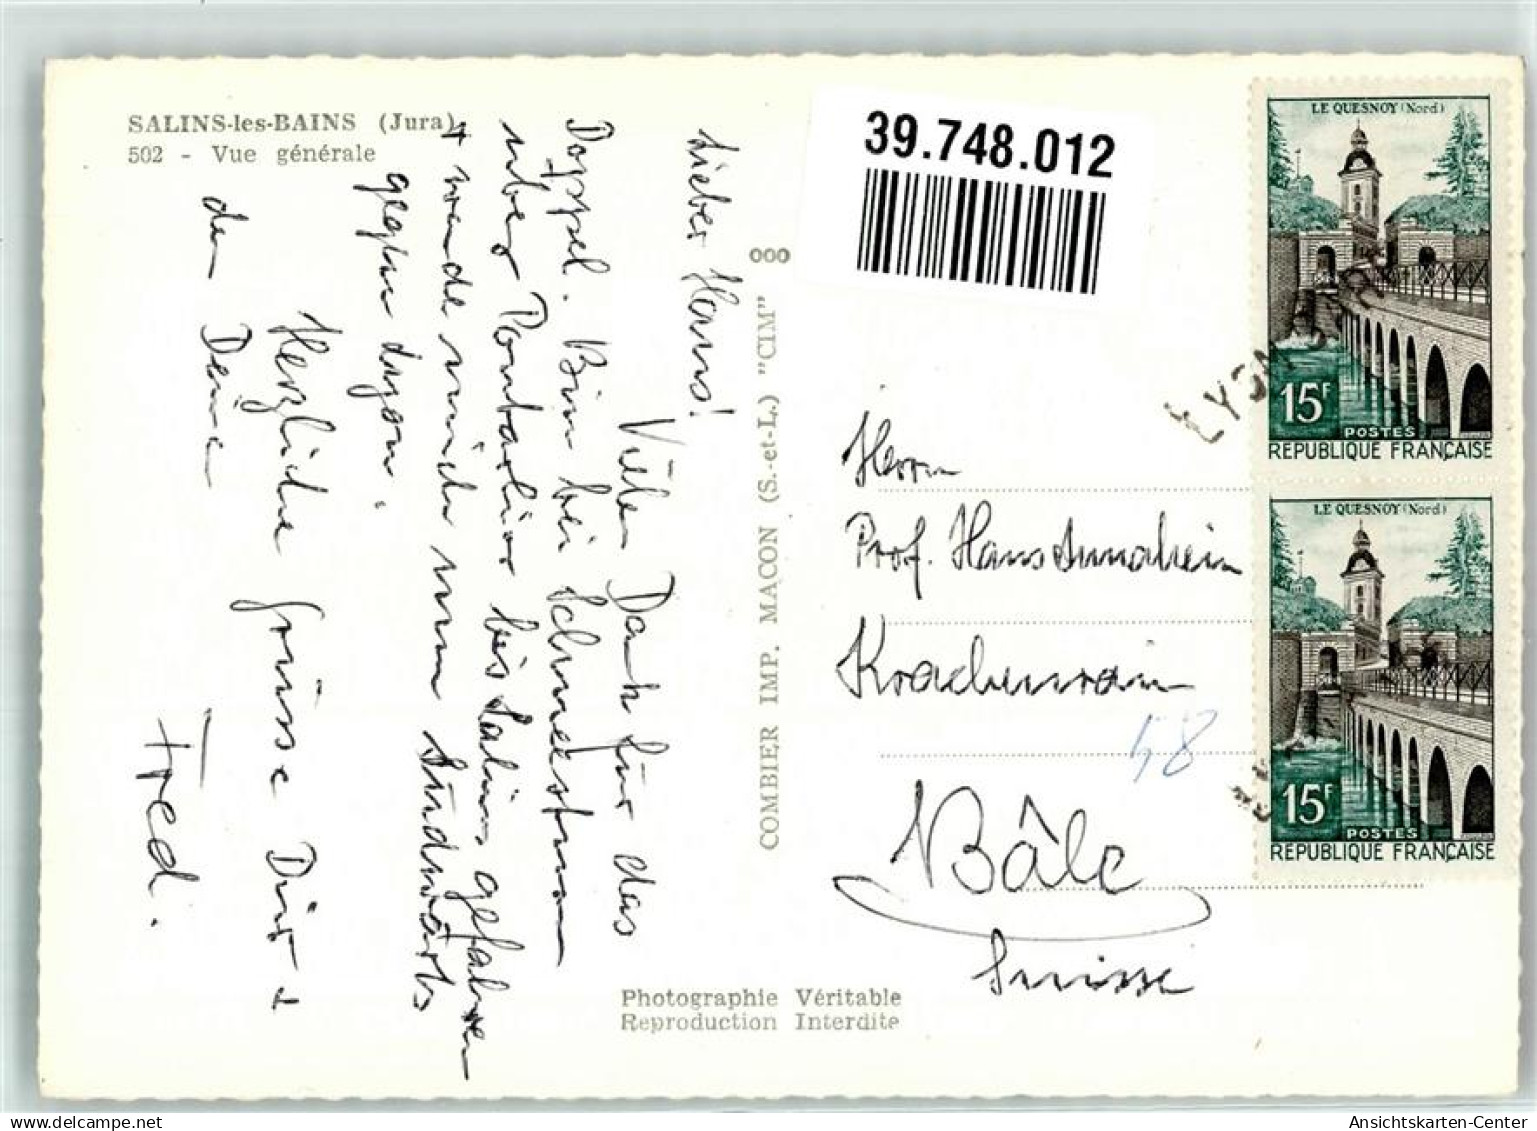 SALINS-les-BAINS (Jura)
502 - Vue générale
Lieber Hans!
Vielen Dank für das
Doppel. Bin bei Schneesturm
über Pontarlier bis Salins gefahren
+ wende mich nun Südwärts
gegen Lyon.
Herzliche Grüsse Dir &
den Deine
Fred.
COMBIER IMP. MACON (S.-et-L.) "CIM"
000
Photographie Véritable
Reproduction Interdite
39.748.012
Herrn
Prof. Hans Annaheim
Krachenrain
58
Bâle
Suisse
LYON
LE QUESNOY (Nord)
15F
POSTES
REPUBLIQUE FRANÇAISE
LE QUESNOY (Nord)
15F
POSTES
REPUBLIQUE FRANÇAISE
Ansichtskarten-Center